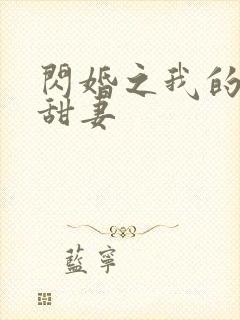 閃婚之我的
甜妻
藍寧